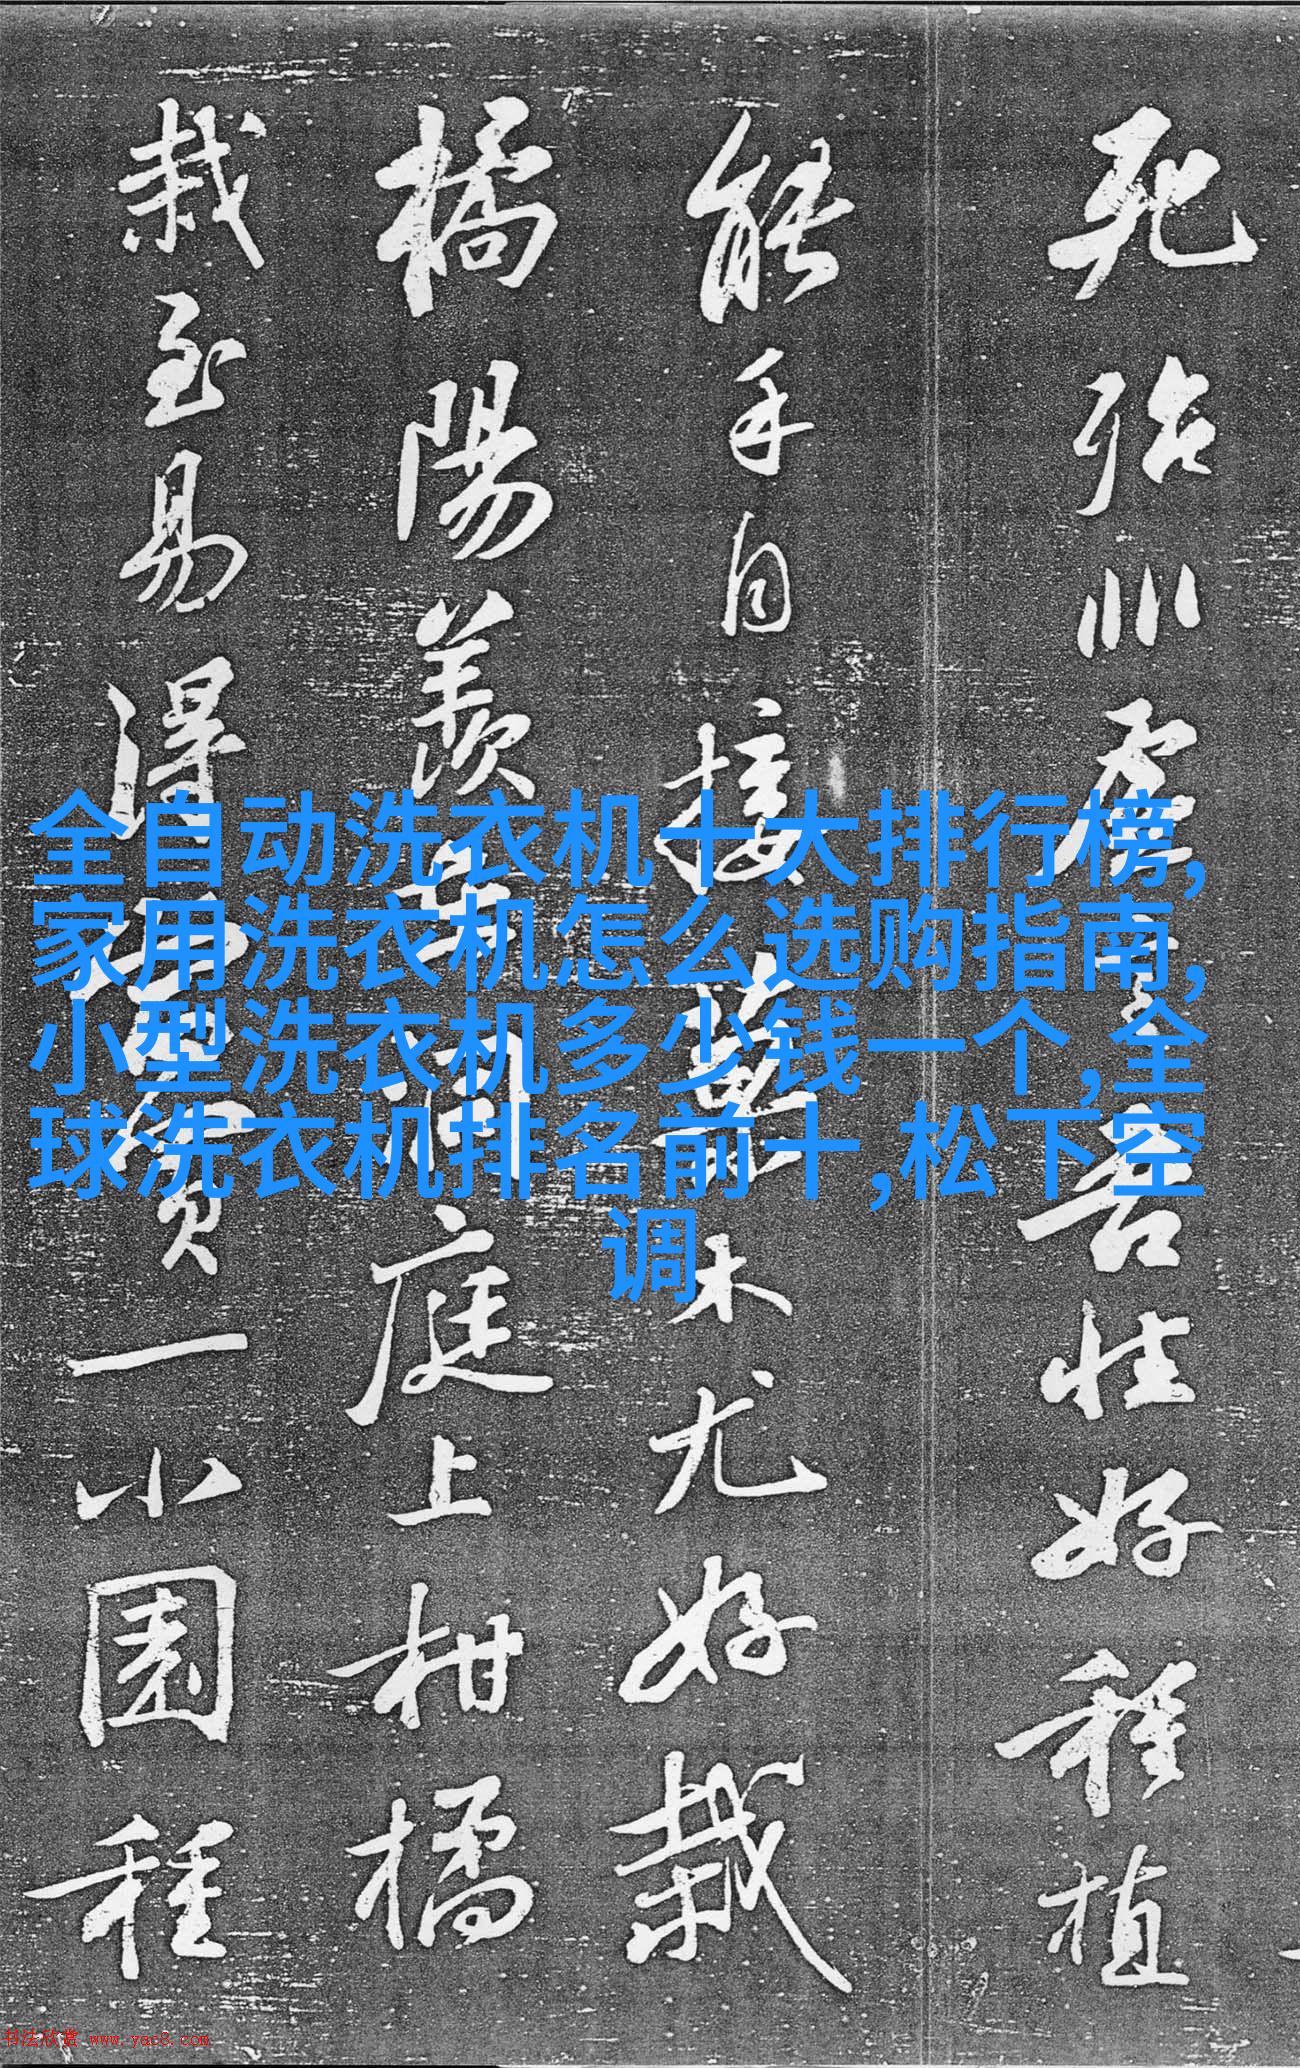 全自动洗衣机十大排行榜,
家用洗衣机怎么选购指南,
小型洗衣机多少钱一个,全
球洗衣机排名前十,松下空
调
死殆非虛言吾性好種植
能手自接菓木尤好栽
橘陽羨在洞庭上柑橘
栽至易得當買一小園種
书法欣赏 www.yac8.com